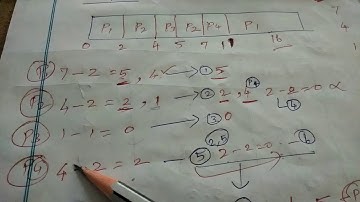 P1 P2 P3 P2 P4 P1
0 2 4 5 7 11 16
P1 7 - 2 = 5, 4 → ① 5
P2 4 - 2 = 2, 1 → ② 2, 4 2 - 2 = 0 ∝
P3 1 - 1 = 0 → ③ 0
P4 4 - 2 = 2 — ⑤ 2 - 2 = 0